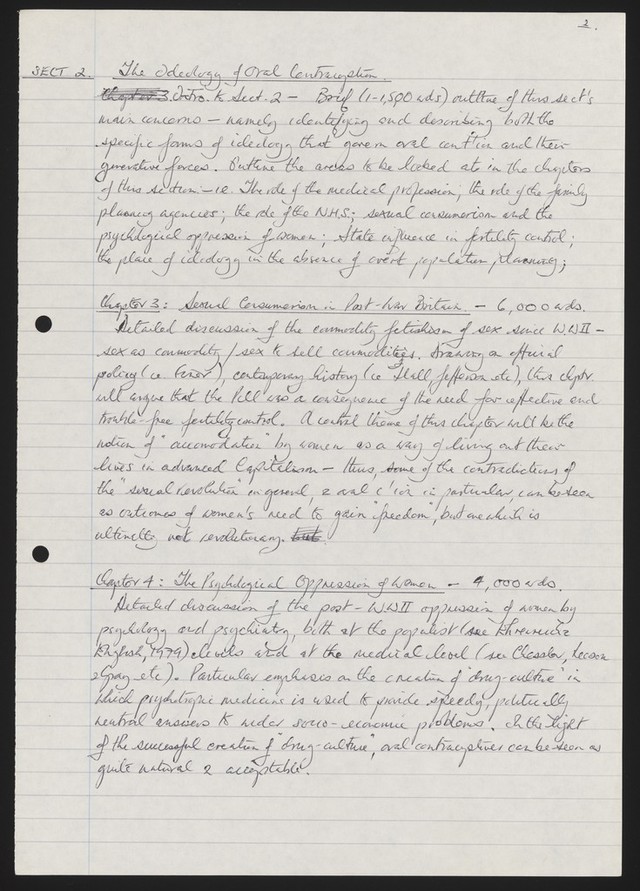 2.
SECT 2. The Ideology of Oral Contraception.
Chapter 3 Intro. to Sect. 2 – Brief (1-1,500 wds) outline of this sect's
main concerns – namely identifying and describing both the
specific forms of ideology that govern oral cont'ion and their
generative forces. Outline the areas to be looked at in the chapters
of this section – ie The role of the medical profession; the role of the family
planning agencies; the role of the N.H.S; sexual consumerism and the
psychological oppression of women; State influence in fertility control;
the place of ideology in the absence of overt population planning;
Chapter 3: Sexual Consumerism in Post-War Britain. – 6,000 wds.
Detailed discussion of the commodity fetishism of sex since WWII –
sex as commodity / sex to sell commodities. Drawing on official
policy (ie), contemporary history (ie Hall, Jefferson etc), this chptr.
will argue that the Pill was a consequence of the need for effective and
trouble-free fertility control. A central theme of this chapter will be the
notion of "accomodation" by women as a way of living out their
lives in advanced Capitalism – thus, some of the contradictions of
the "sexual revolution" in general, & oral c'ion in particular, can be seen
as outcomes of women's need to gain "freedom", but one which is
ultimately not revolutionary. but
Chapter 4: The Psychological Oppression of Women – 4,000 wds.
Detailed discussion of the post-WWII oppression of women by
psychology and psychiatry, both at the populist (see Ehrenreich &
English, 1979) levels and at the medical level (see Chessler,
etc). Particular emphasis on the creation of "drug-culture" in
which psychotropic medicine is used to provide speedy, politically
neutral answers to wider socio-economic problems. In the light
of the successful creation of "drug-culture", oral contraceptives can be seen as
quite natural & acceptable.